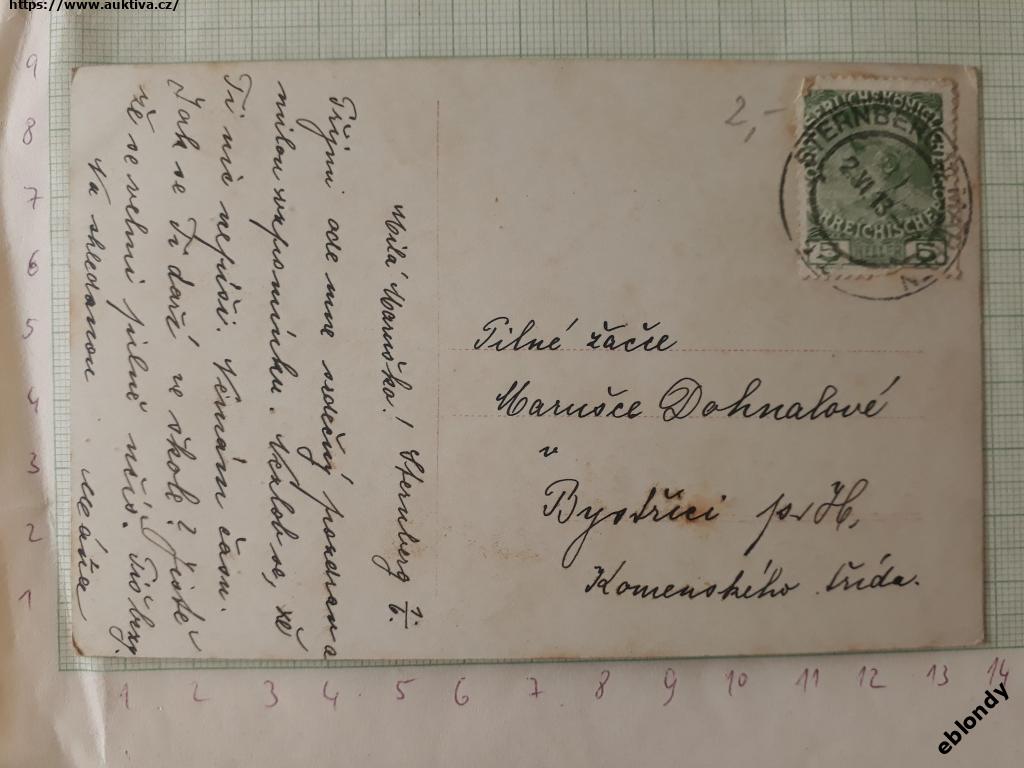 https://www.auktiva.cz/
9
8
7
6
5
4
3
2
1
2,-
STERNBERG
2 VI 13
5 5
Milá Maruško! Sternberg 1/6.
Přijmi ode mne srdečný pozdrav a
milou vzpomínku. Nezlob se, že
Ti nic nepíši. Nemám času.
Jak se Ti daří ve škole? Jistě
že se velmi pilně učíš. Piš brzy.
Na shledanou Máňa
Pilné žačce
Marušce Dohnalové
v
Bystřici pr H,
Komenského třída.
1 2 3 4 5 6 7 8 9 10 11 12 13 14
eblondy